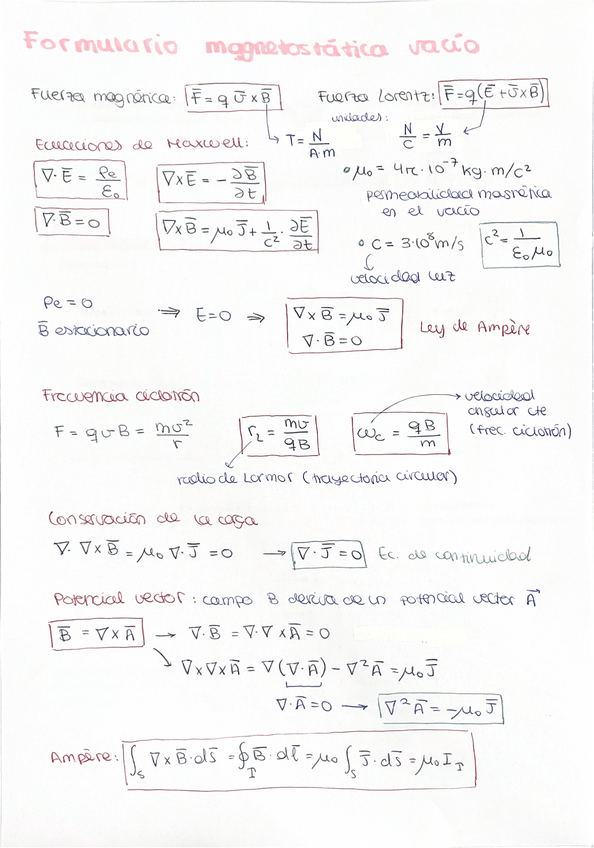 Formulario magnetostática vacío
Fuerza magnética: F̅ = q v̅ x B̅
Fuerza Lorentz: F̅ = q(E̅ + v̅ x B̅)
unidades:
T = N / A·m
N/C = V/m
Ecuaciones de Maxwell:
∇·E̅ = ρe/ε₀
∇xE̅ = - ∂B̅/∂t
∇·B̅ = 0
∇xB̅ = μ₀ J̅ + 1/c² · ∂E̅/∂t
μ₀ = 4π·10⁻⁷ kg·m/c²
permeabilidad magnética
en el vacío
c = 3·10⁸ m/s
c² = 1/ε₀μ₀
velocidad luz
ρe = 0
B̅ estacionario
⇒ E=0 ⇒
∇xB̅ = μ₀ J̅
∇·B̅ = 0
Ley de Ampère
Frecuencia ciclotrón
F = qvB = mv²/r
r_L = mv/qB
ω_c = qB/m
velocidad
angular cte
(frec. ciclotrón)
radio de Larmor (trayectoria circular)
Conservación de la carga
∇·∇xB̅ = μ₀ ∇·J̅ = 0 → ∇·J̅ = 0 Ec. de continuidad
Potencial vector: campo B deriva de un potencial vector A⃗
B̅ = ∇xA̅ → ∇·B̅ = ∇·∇xA̅ = 0
∇x∇xA̅ = ∇(∇·A̅) - ∇²A̅ = μ₀ J̅
∇·A̅ = 0 → ∇²A̅ = -μ₀ J̅
Ampère: ∫_S ∇xB̅·ds̅ = ∮_T B̅·dl̅ = μ₀ ∫_S J̅·ds̅ = μ₀ I_T